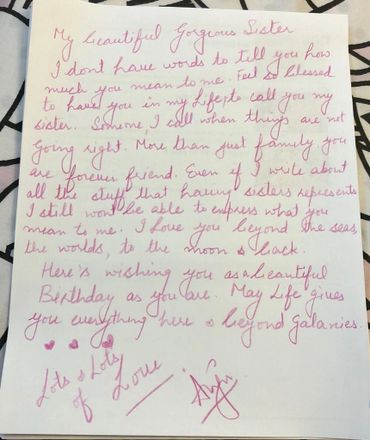 My beautiful Gorgious Sister
I dont have words to tell you how
much you mean to me. Feel so blessed
to have you in my life, to call you my
sister. Someone, I call when things are not
going right. More than just family, you
are forever friend. Even if I write about
all the stuff that having sisters represents
I still wont be able to express what you
mean to me. I love you beyond the seas,
the worlds, to the moon & back.
Here's wishing you as a beautiful
Birthday as you are. May Life gives
you everything here & beyond Galaxies.
Lots & Lots
of Love